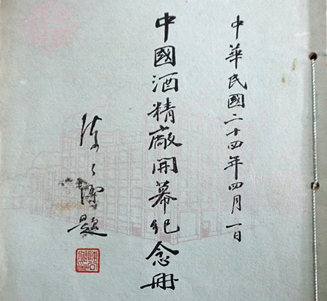 中華民國二十四年四月一日
中國酒精廠開幕紀念冊
陳公博題